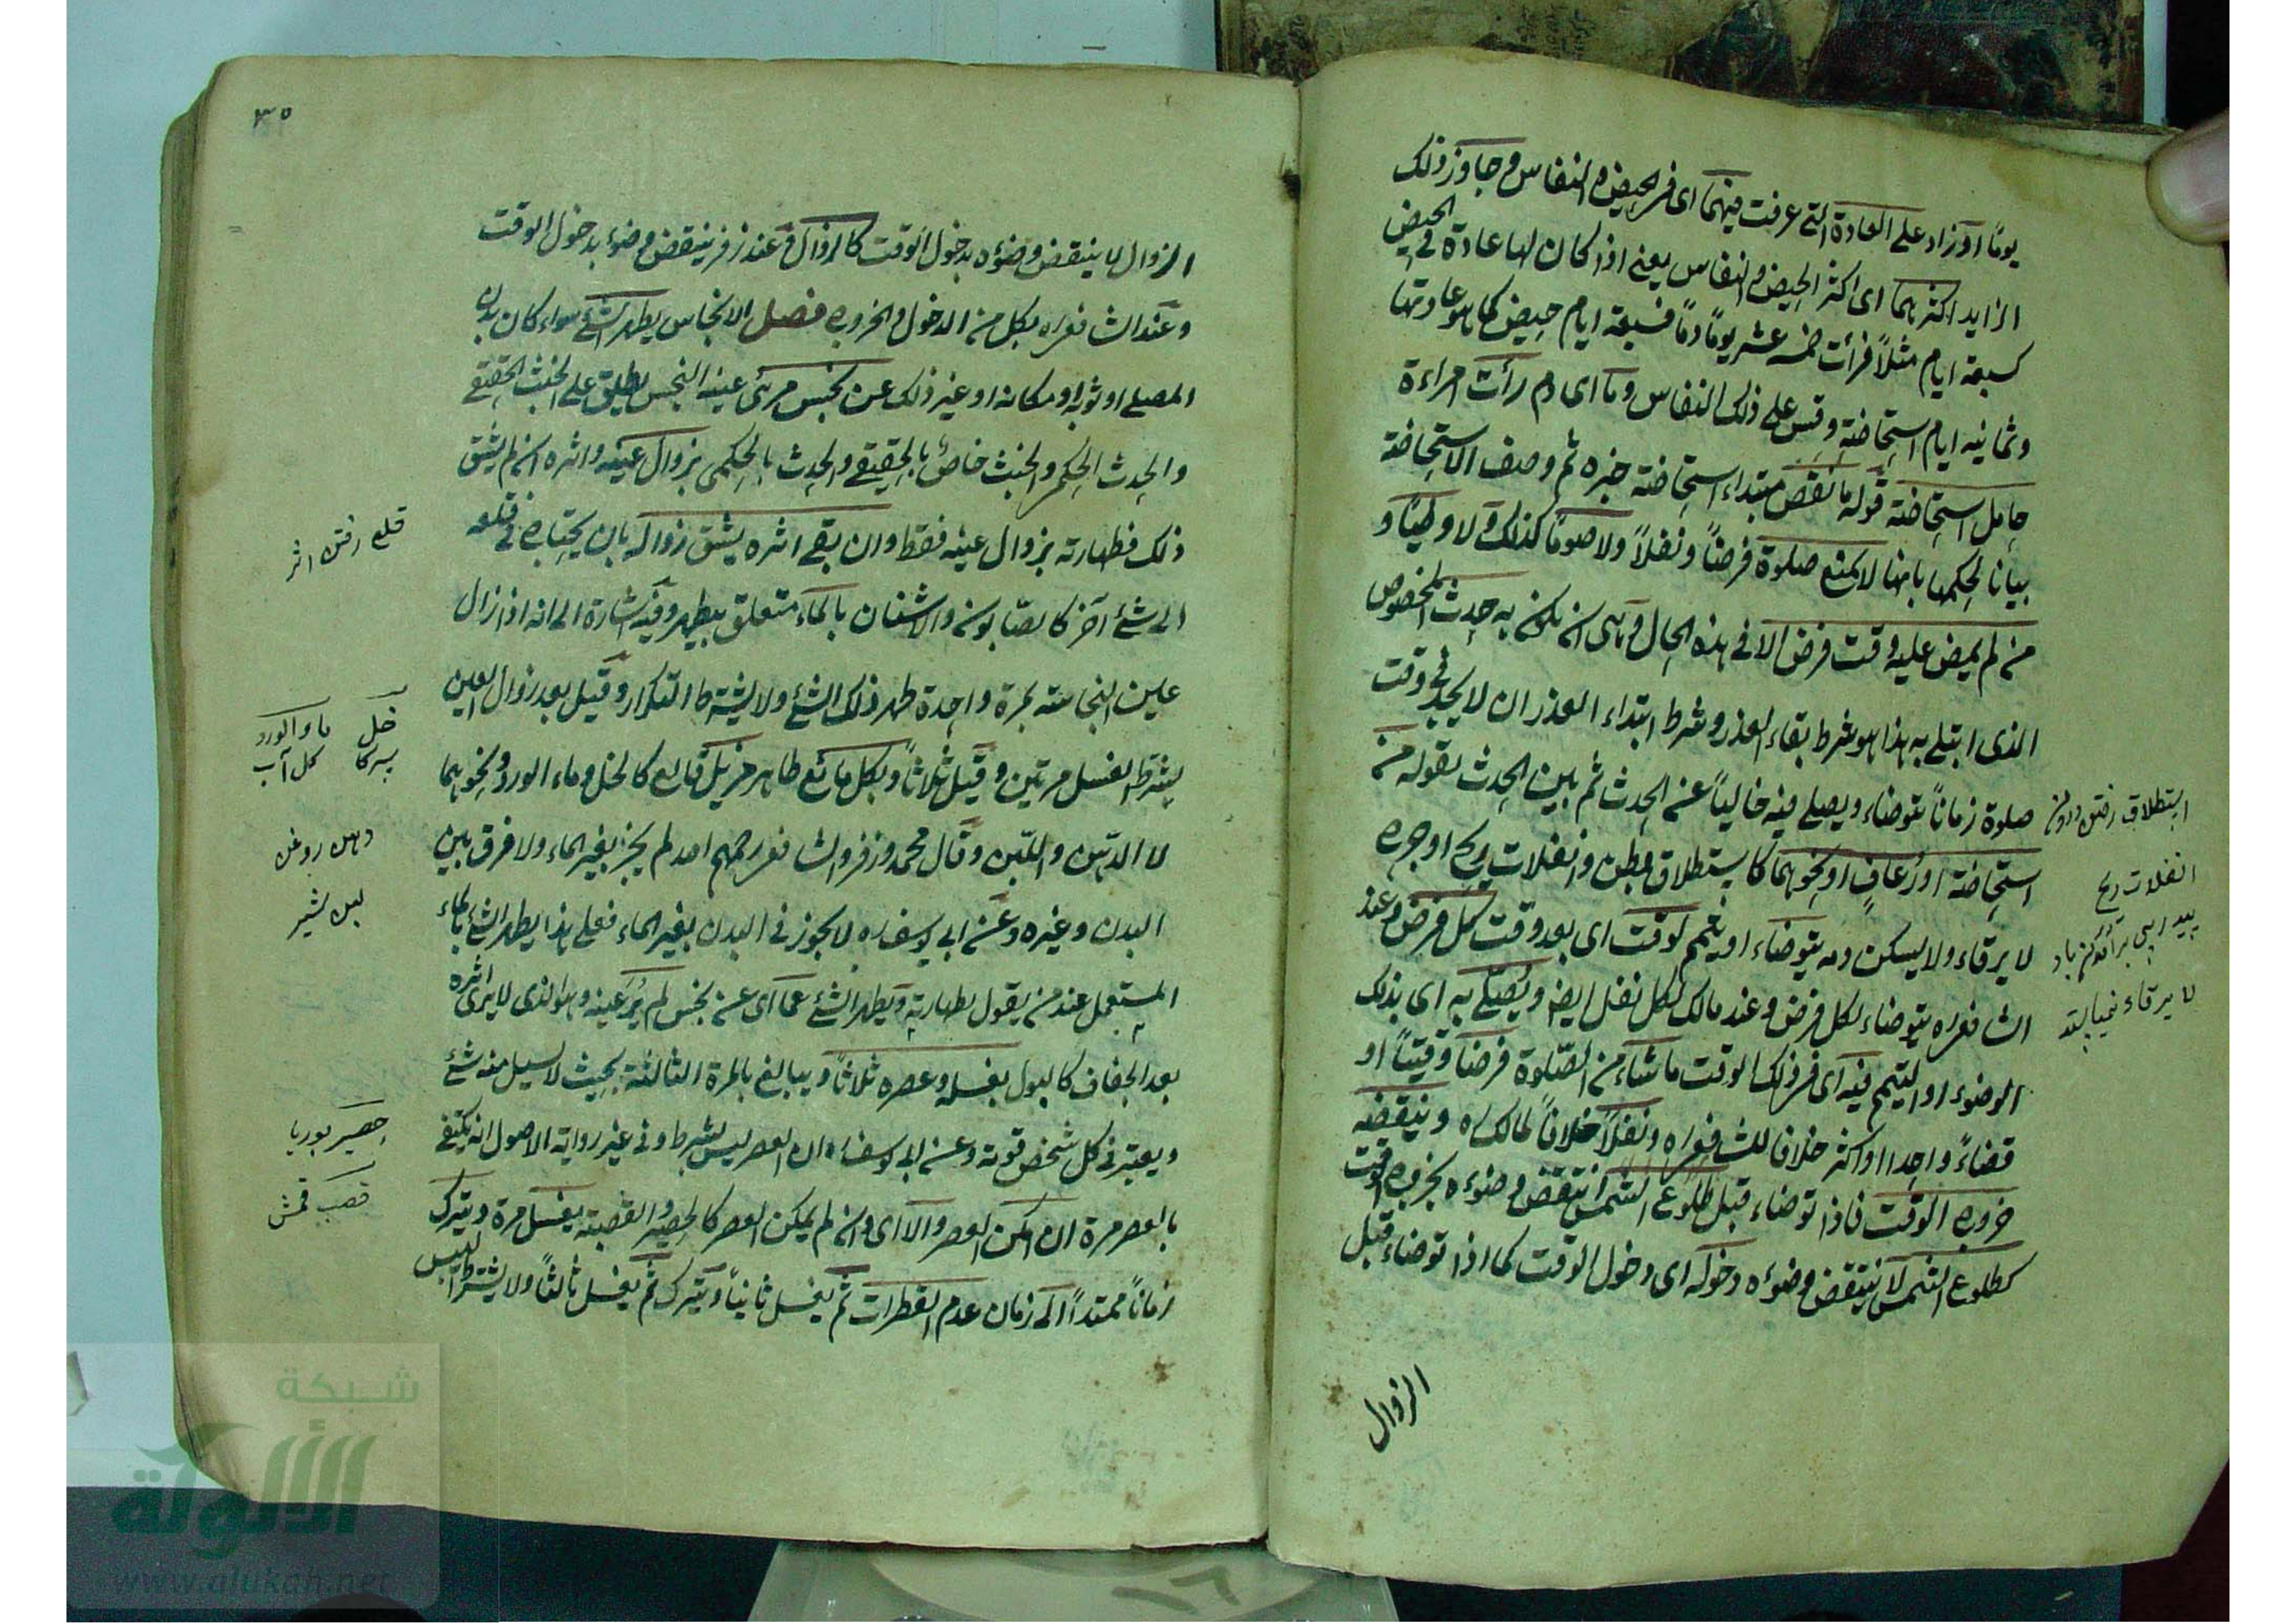 يوماً او زاد على العادة التي عرفت فيها اى في الحيض والنفاس وجاوز ذلك
الزايد اكثرهما اى اكثر الحيض والنفاس يعنى اذا كان لها عادة في الحيض
كسبعة ايام مثلاً فرأت خمسة عشر يوماً دماً فسبعة ايام حيض كما هو عادتها
وثمانية ايام استحاضة وقس على ذلك النفاس وما اى دم رأت امراءة
حامل استحاضة قوله ما نقص مبتداء استحاضة خبره ثم وصف الاستحاضة
بيانا لحكمها بانها لا تمنع صلوة فرضاً ونفلاً ولا صوماً كذلك ولا وطياً و
من لم يمض عليه وقت فرض الا في هذه الحال وهى ان يكون به حدث المخصوص
الذى ابتلى به هذا هو شرط بقاء العذر وشرط ابتداء العذر ان لا يجد في وقت
صلوة زماناً يتوضاء ويصلى فيه خالياً عن الحدث ثم بين الحدث بقوله من
استحاضة او رعاف او نحوهما كاستطلاق بطن وانفلات ريح او جرح
لا يرقاء ولا يسكن دمه يتوضاء او يتيمم لوقت اى بعد وقت كل فرض وعند
الشافعى ره يتوضاء لكل فرض وعند مالك لكل نفل ايضا ويصلى به اى بذلك
الوضوء او التيمم فيه اى في ذلك الوقت ما شاء من الصلوة فرضا وقتياً او
قضاءً واحدا او اكثر خلافا للشافعى ره ونفلاً خلافاً لمالك ره وينقضه
خروج الوقت فاذا توضاء قبل طلوع الشمس انتقض وضوءه بخروج الوقت
كطلوع الشمس لا ينتقض وضوءه دخوله اى دخول الوقت كما اذا توضاء قبل
الزوال
استطلاق رفتن درون
انفلات ريح
لا يرقاء
٣٥
الزوال لا ينتقض وضوءه بدخول الوقت كالزوال وعند زفر ينتقض وضوء بدخول الوقت
وعند الشافعى ره بكل من الدخول والخروج فصل الانجاس يطهر الشئ سواء كان بدن
المصلى او ثوبه او مكانه او غير ذلك عن نجس مرئى عينه النجس يطلق على الخبث الحقيقى
والحدث الحكمى والخبث خاص بالحقيقى والحدث بالحكمى بزوال عينه واثره ان لم يشق
ذلك فطهارته بزوال عينه فقط وان بقى اثره يشق زواله بان يحتاج في قلعه
الى شئ آخر كالصابون والاشنان بالماء متعلق بيطهر وفيه اشارة الى انه اذا زال
عين النجاسة بمرة واحدة طهر ذلك الشئ ولا يشترط التكرار وقيل بعد زوال العين
يشترط الغسل مرتين وقيل ثلاثاً وبكل مائع طاهر مزيل قالع كالخل وماء الورد ونحوهما
لا الدهن واللبن وقال محمد وزفر والشافعى رحمهم الله لم يجز بغير الماء ولا فرق بين
البدن وغيره وعن ابى يوسف ره لا يجوز في البدن بغير الماء فعلى هذا يطهر الشئ بالماء
المستعمل عند من يقول بطهارته ويطهر الشئ عما اى عن نجس لم ير عينه وهو الذى لا يرى اثره
بعد الجفاف كالبول بغسله وعصره ثلاثاً ويبالغ بالمرة الثالثة بحيث لا يسيل منه شئ
ويعتبر في كل شخص قوته وعن ابى يوسف ره ان العصر ليس بشرط وفي غير رواية الاصول انه يكتفى
بالعصر مرة ان امكن العصر والا اى وان لم يمكن العصر كالحصير والقصبة يغسل مرة ويترك
زماناً ممتداً الى زمان عدم القطرات ثم يغسل ثانياً ويترك ثم يغسل ثالثاً ولا يشترط اليبس
قلع رفتن اثر
خل ماء الورد
سركا كل آب
دهن روغن
لبن شير
حصير بوريا
قصب
شبكة
الألوكة
www.alukah.net